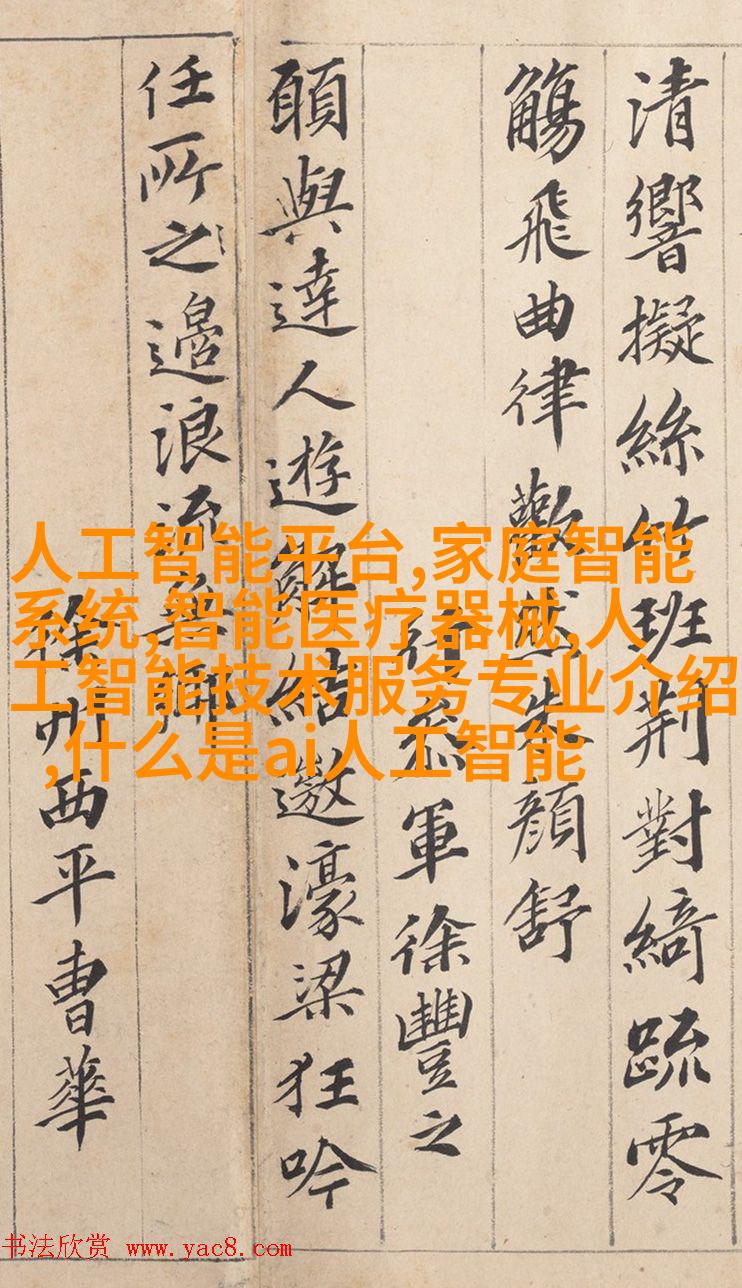 清響擬絲竹班荆對綺疏零
觴飛曲律歡然朱顏舒
行叅軍徐豐之
願與達人遊解結遨濠梁狂吟
任所之邊浪流無鄉
徐州西平曹華
人工智能平台,家庭智能
系统,智能医疗器械,人
工智能技术服务专业介绍
,什么是ai人工智能
书法欣赏 www.yac8.com